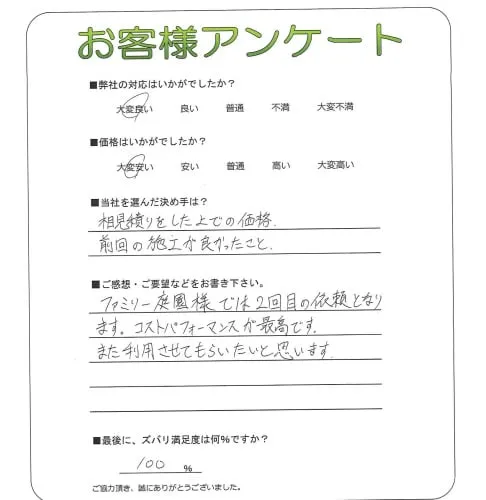 お客様アンケート
■弊社の対応はいかがでしたか？
大変良い 良い 普通 不満 大変不満
■価格はいかがでしたか？
大変安い 安い 普通 高い 大変高い
■当社を選んだ決め手は？
相見積りをした上での価格.
前回の施工が良かったこと.
■ご感想・ご要望などをお書き下さい。
ファミリー庭園様では2回目の依頼となり
ます。コストパフォーマンスが最高です。
また利用させてもらいたいと思います.
■最後に、ズバリ満足度は何%ですか？
100 %
ご協力頂き、誠にありがとうございました。